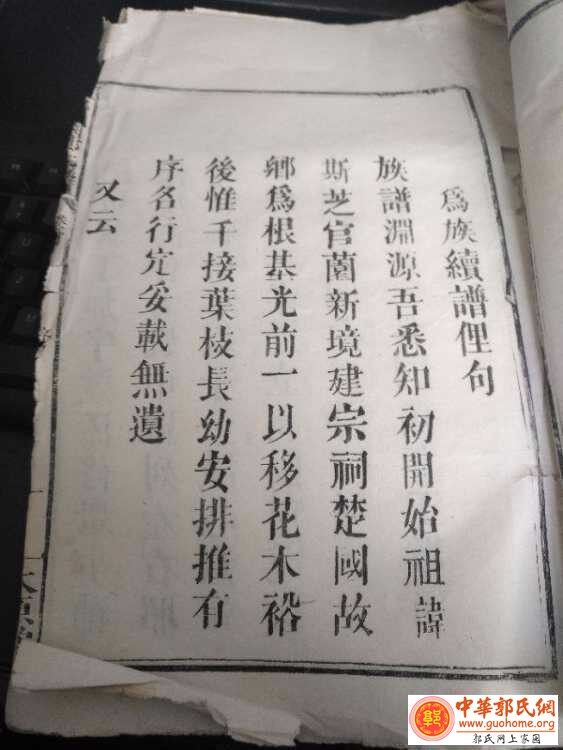 爲族續譜俚句
族譜淵源吾悉知初開始祖諱
斯芝官蘭新境建宗祠楚國故
鄉爲根基光前一以移花木裕
後惟千接葉枝長幼安排推有
序各行定妥載無遺
又云
中華郭氏網
www.guohome.org
郭氏网上家园